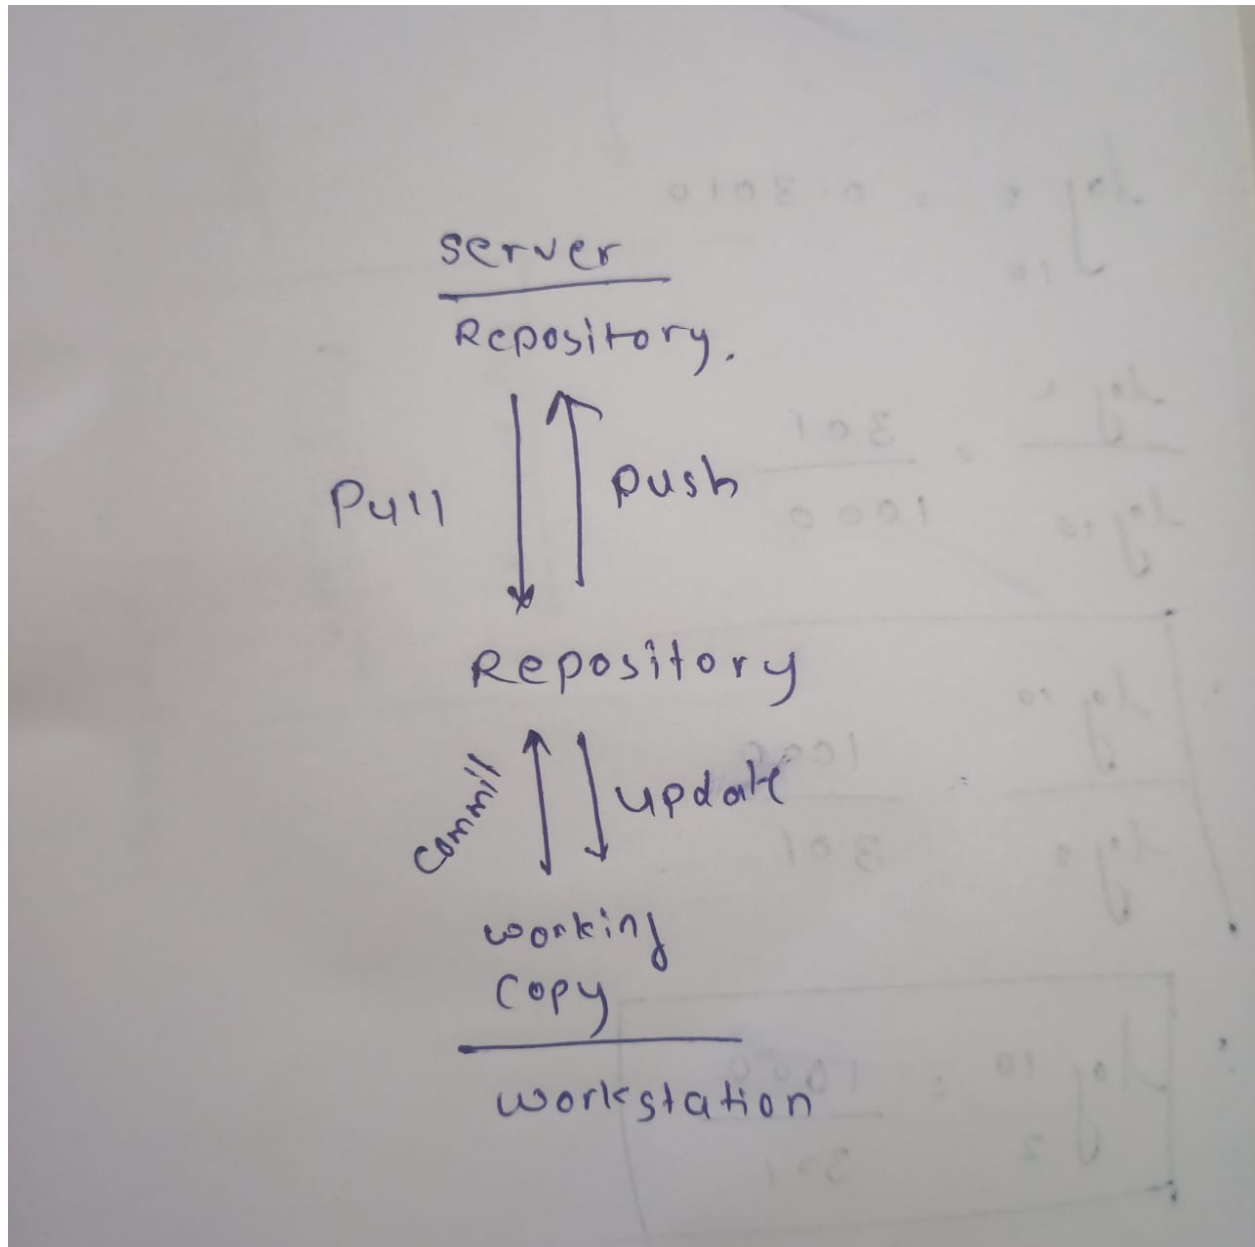 server
Repository.
Pull
push
Repository
commit
update
working
copy
workstation